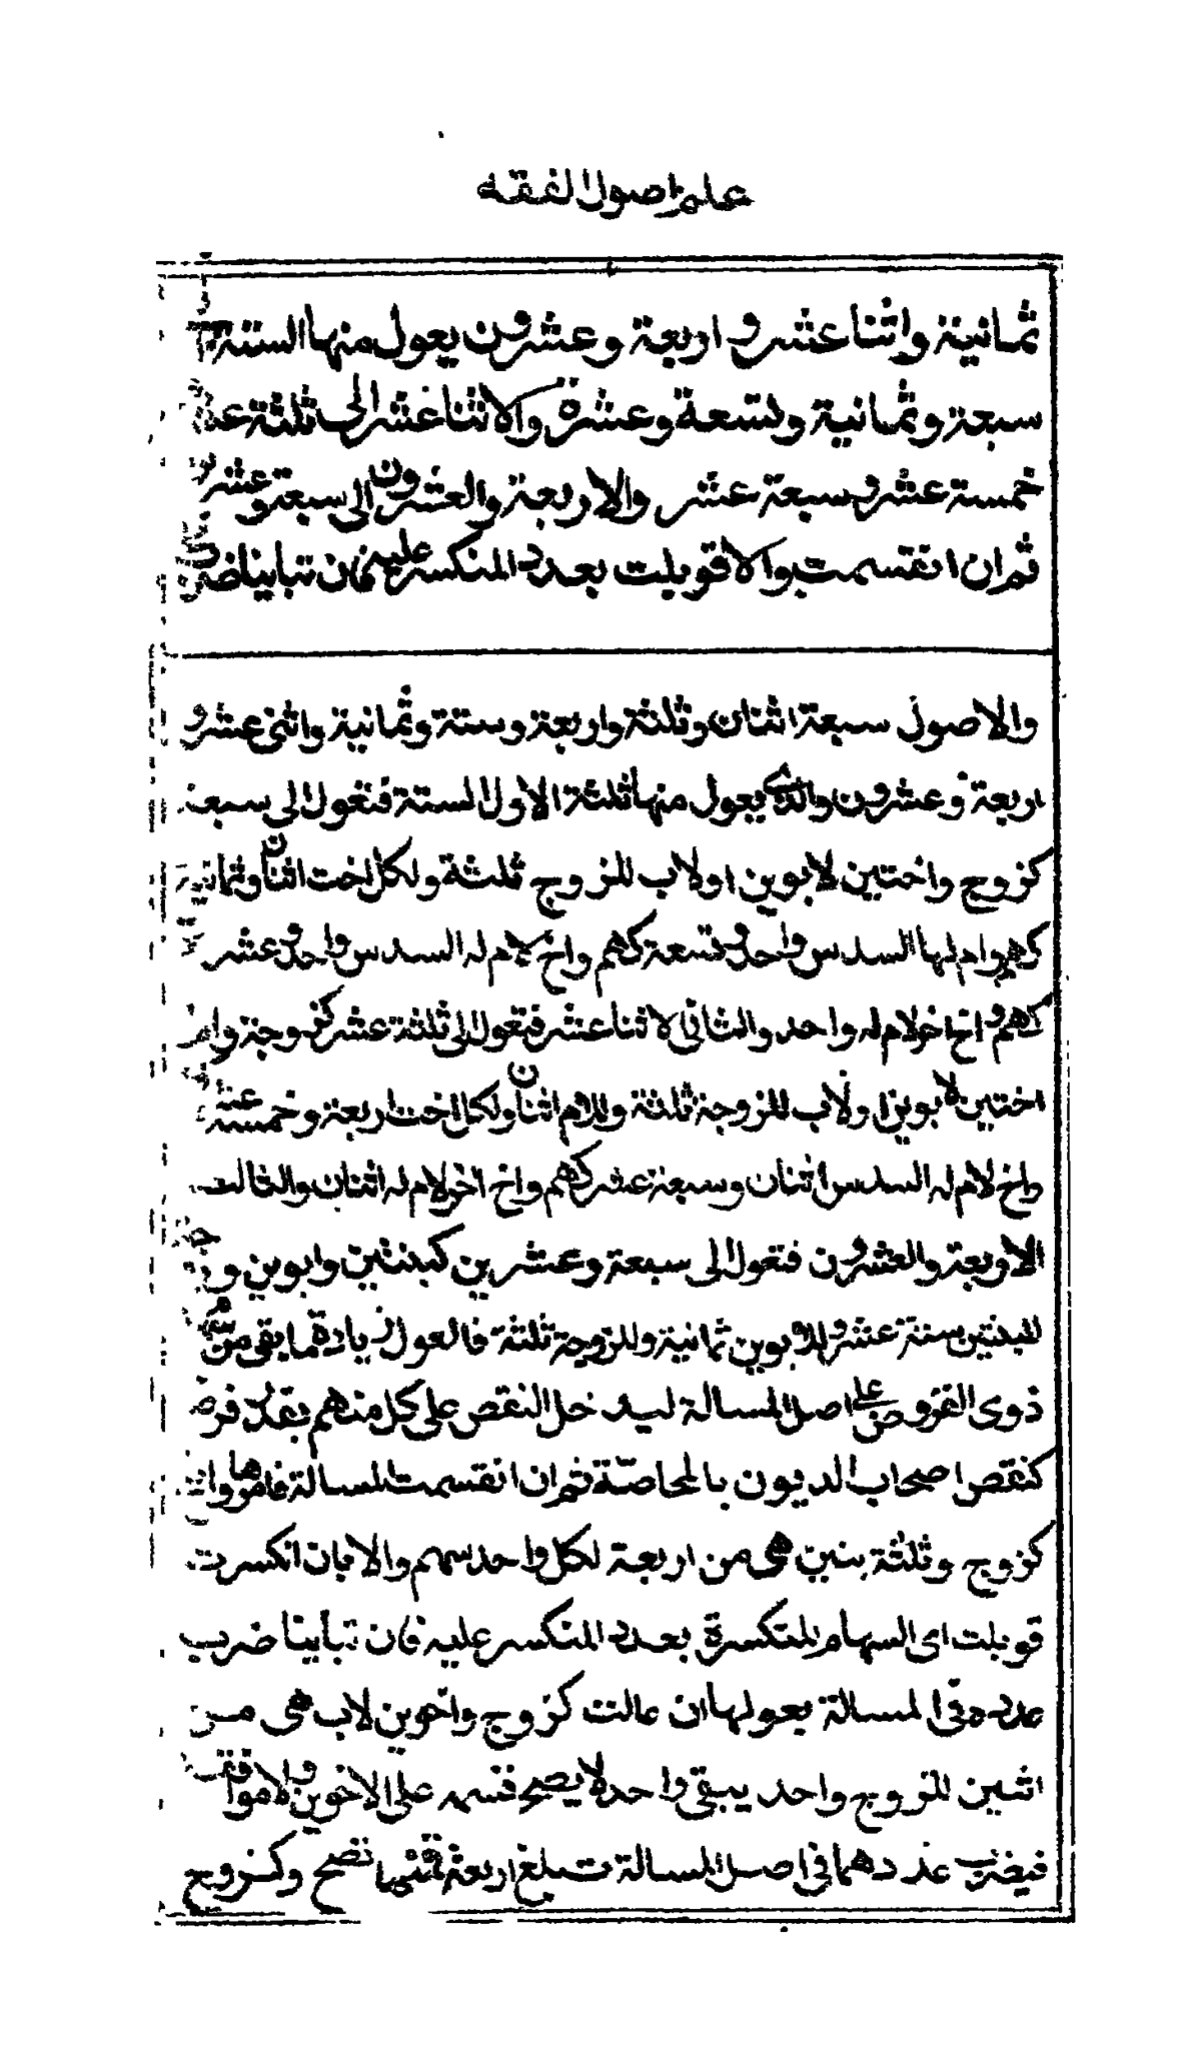 علم اصول الفقه
ثمانية واثنا عشر و اربعة وعشرون يعول منها الستة
سبعة وثمانية وتسعة وعشرة والاثنا عشر الى ثلثة
خمسة عشر وسبعة عشر والاربعة والعشرون الى سبعة وعشر
ثم ان انقسمت والا قوبلت بعدد المنكسر عليه فان تباينا
والاصول سبعة اثنان وثلثة واربعة وستة وثمانية واثنى عشر و
اربعة وعشرون والذى يعول منها ثلثة الاول الستة فتعول الى سبعة
كزوج واختين لابوين اولاب للزوج ثلثة ولكل اخت اثنان وثمانية
كهم وام لها السدس واحد وتسعة كهم واخ لام له السدس واحد وعشر
كهم و اخ اخر لام له واحد والثانى الاثنا عشر فتعول الى ثلثة عشر كزوجة وام
اختين لابوين اولاب للزوجة ثلثة وللام اثنان ولكل اخت اربعة وخمسة
واخ لام له السدس اثنان وسبعة عشر كهم واخ اخر لام له اثنان والثالث
الاربعة والعشرون فتعول الى سبعة وعشرين كبنتين وابوين و
للبنتين ستة عشر وللابوين ثمانية وللزوجة ثلثة فالعول زيادة ما بقى من
ذوى الفروض على اصل المسالة ليدخل النقص على كل منهم بقدر فرضه
كنقص اصحاب الديون بالمحاصة ثم ان انقسمت المسالة فامرها
كزوج وثلثة بنين هى من اربعة لكل واحد سهم والا بان انكسرت
قوبلت اى السهام المنكسرة بعدد المنكسر عليه فان تباينا ضرب
عدده فى المسالة بعولها ان عالت كزوج واخوين لاب هى من
اثنين للزوج واحد يبقى واحد لا يصح قسمه على الاخوين ولا موافقة
فيضرب عددهما فى اصل المسالة تبلغ اربعة تصح وكزوج